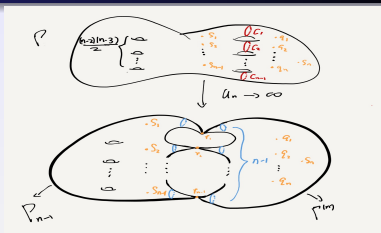 Γ
(n-2)(n-3)/2
· S₁ · S₂ ⋮ · Sₙ₋₁
C₁ C₂ ⋮ Cₙ₋₁
· q₁ · q₂ ⋮ · qₙ · Sₙ
aₙ → ∞
· S₁ · S₂ ⋮ · Sₙ₋₁
r₁
rₙ₋₁
n-1
· q₁ · q₂ ⋮ · qₙ · Sₙ
Γₙ₋₁